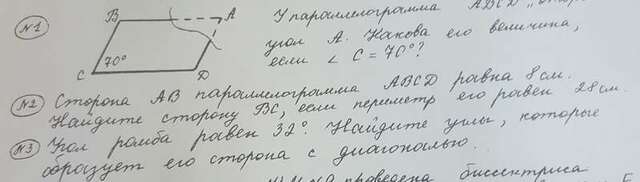 №1
B
A
C
D
70°
У параллелограмма ABCD
угол A. Какова его величина,
если ∠ C = 70°?
№2 Сторона AB параллелограмма ABCD равна 8 см.
Найдите сторону BC, если периметр его равен 28 см.
№3 Угол ромба равен 32°. Найдите углы, которые
образует его сторона с диагональю.
проведена биссектриса